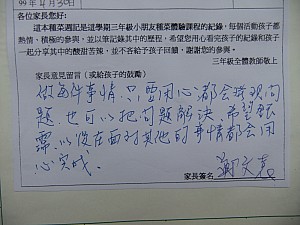 99年4月30日
各位家長您好:
這本種菜週記是這學期三年級小朋友種菜體驗課程的紀錄,每個活動孩子都
熱情、積極的參與,並以筆記錄其中的歷程,希望您用心看完孩子的紀錄和孩子
一起分享其中的酸甜苦辣,並不吝給予孩子回饋。謝謝您的參與。
三年級全體教師敬上
家長意見留言(或給孩子的鼓勵)
做每件事情,只要用心都會發現問
題,也可以把問題解決。希望
以後在面對其他的事情都會用
心完成
家長簽名